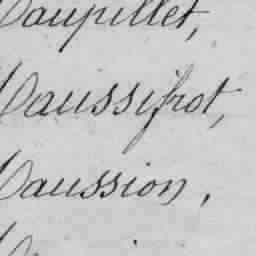 Maupillet,
Maussifrot,
Maussion,